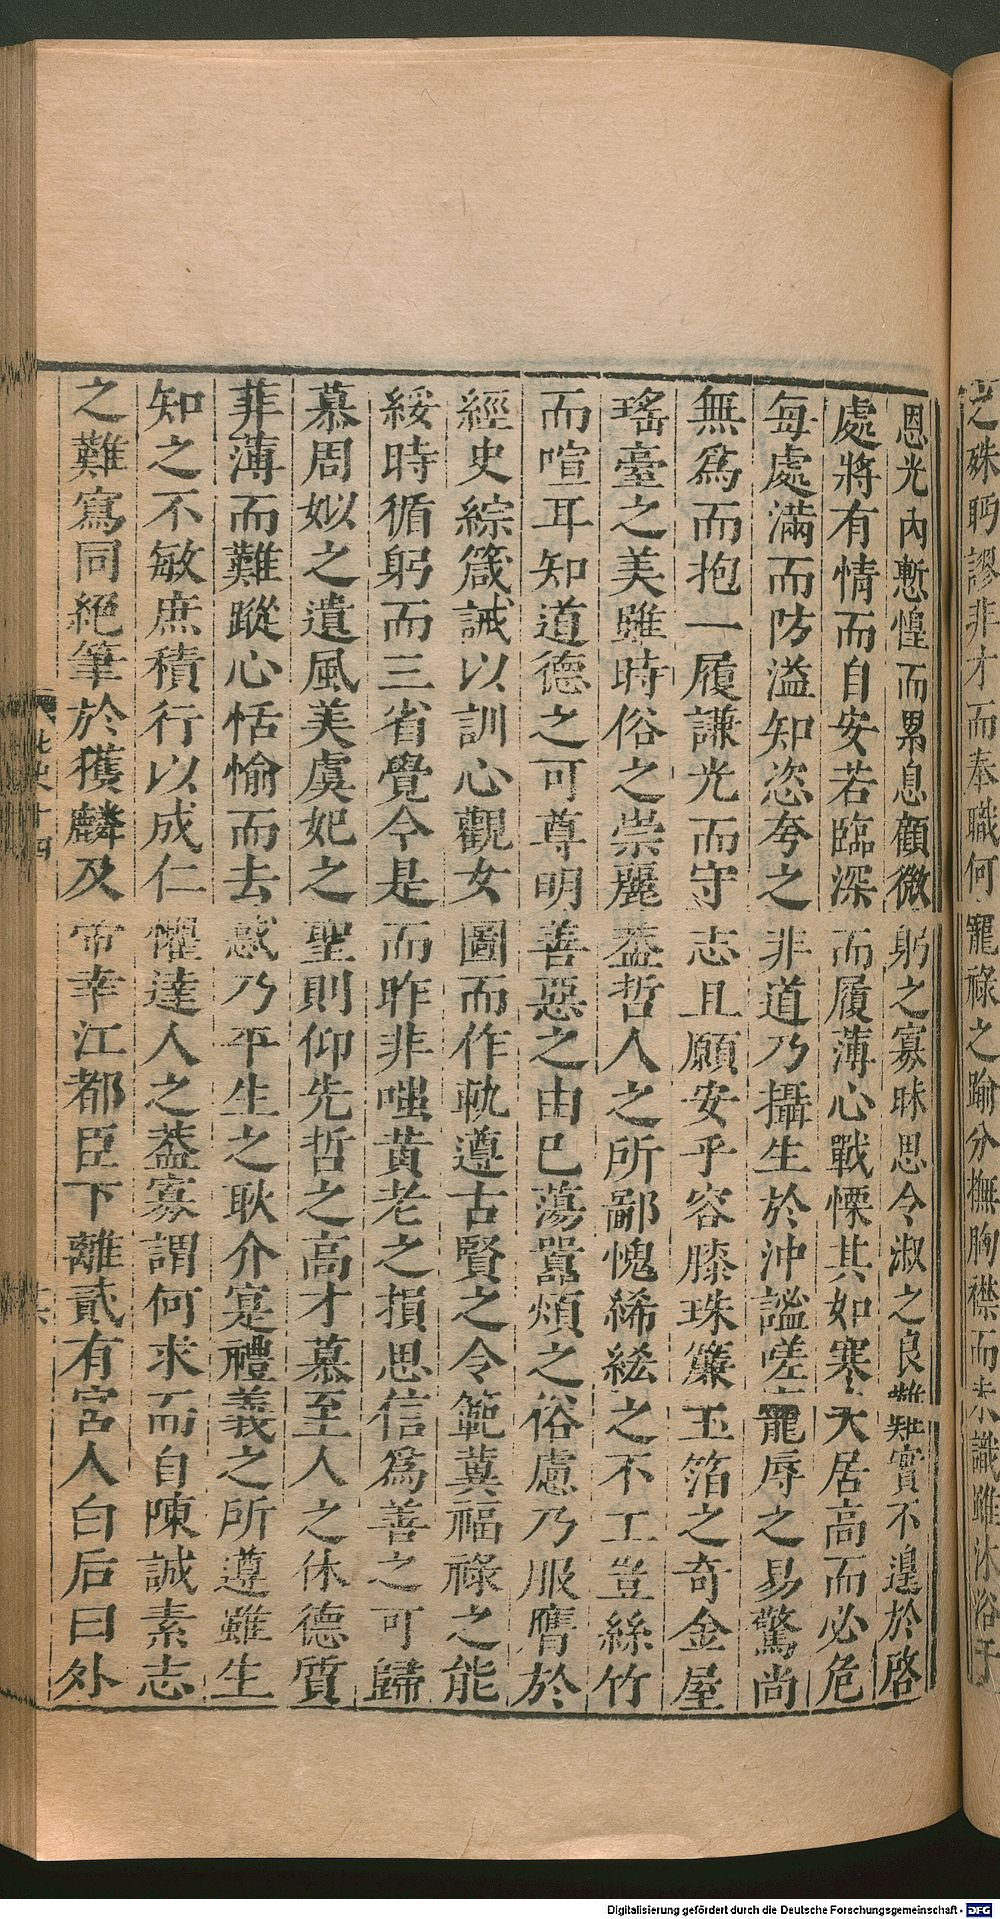 之殊眄謬非才而奉職何寵祿之踰分撫胸襟而未識雖沐浴于
恩光內慙惶而累息顧微躬之寡昧思令淑之良難實不遑於啓
處將有情而自安若臨深而履薄心戰慄其如寒夫居高而必危
每處滿而防溢知恣夸之非道乃攝生於沖謐嗟寵辱之易驚尚
無爲而抱一履謙光而守志且願安乎容膝珠簾玉箔之奇金屋
瑤臺之美雖時俗之崇麗蓋哲人之所鄙愧絺綌之不工豈絲竹
而喧耳知道德之可尊明善惡之由已蕩囂煩之俗慮乃服膺於
經史綜箴誡以訓心觀女圖而作軌遵古賢之令範冀福祿之能
綏時循躬而三省覺今是而昨非嗤黃老之損思信爲善之可歸
慕周姒之遺風美虞妃之聖則仰先哲之高才慕至人之休德質
菲薄而難蹤心恬愉而去惑乃平生之耿介寔禮義之所遵雖生
知之不敏庶積行以成仁懼達人之蓋寡謂何求而自陳誠素志
之難寫同絕筆於獲麟及帝幸江都臣下離貳有宮人白后曰外
北史十四
Digitalisierung gefördert durch die Deutsche Forschungsgemeinschaft - DFG